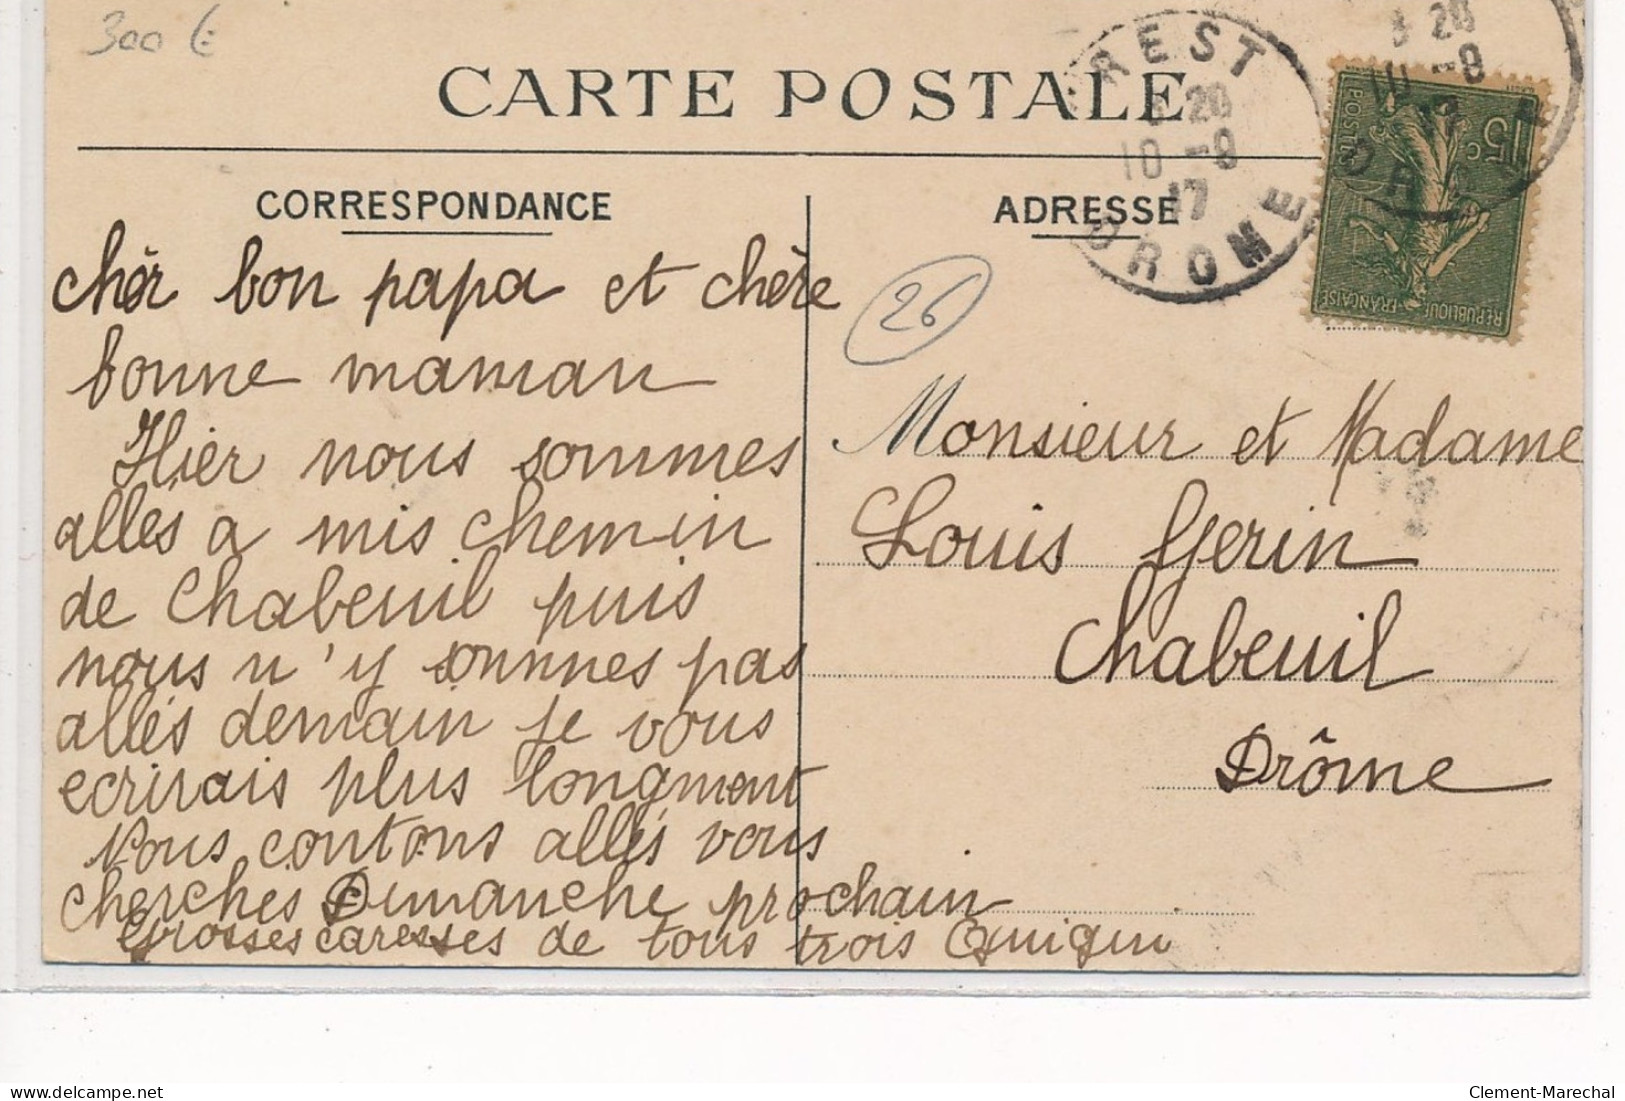 300 €
CARTE POSTALE
CREST
8 20
10 -8
17
DROME
8 20
10 -8
17
DRO E
POSTES
15 c
REPUBLIQUE FRANÇAISE
CORRESPONDANCE
Chèr bon papa et chère
bonne maman
Hier nous sommes
alles a mis chemin
de Chabeuil puis
nous n'y sommes pas
allés demain je vous
ecrirais plus longment
Nous contons allés vous
cherchés Dimanche prochain
Grosses caresses de tous trois Quiqui
ADRESSE
26
Monsieur et Madame
Louis Gerin
Chabeuil
Drôme
www.delcampe.net
Clement-Marechal